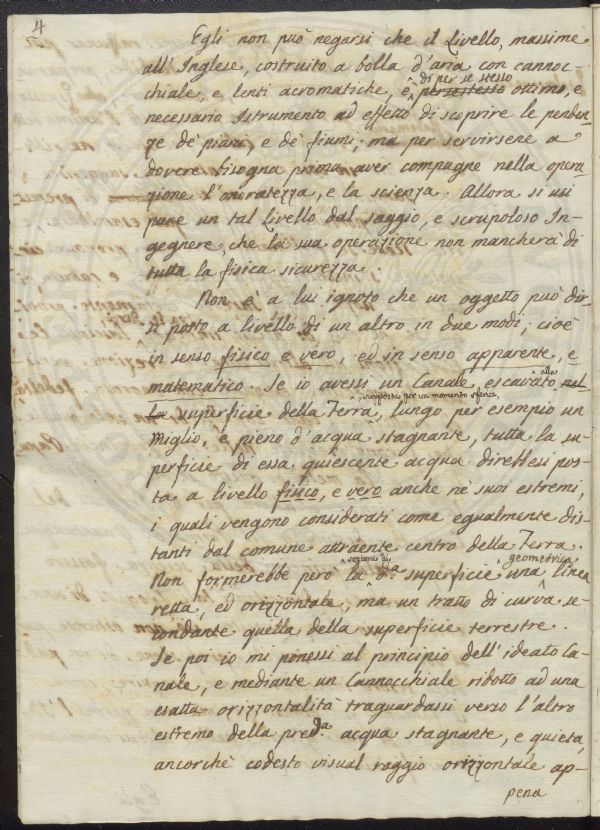 4
Egli non può negarsi che il Livello, massime
all'Inglese, costruito a bolla d'aria con cannoc-
di per se stesso
chiale, e lenti acromatiche, è per se stesso ottimo, e
necessario Istrumento ad effetto di scoprire le penden-
ze de' piani, e de' fiumi; ma per servirsene a
dovere bisogna prima aver compagne nella opera-
zione l'onoratezza, e la scienza. Allora si usi
pure un tal Livello dal saggio, e scrupoloso In-
gegnere, che la sua operazione non mancherà di
tutta la fisica sicurezza.
Non è a lui ignoto che un oggetto può dir-
si posto a livello di un altro in due modi; cioè
in senso fisico e vero, ed in senso apparente, e
alla
matematico. Se io avessi un Canale, escavato nel
supposta per un momendo sferica,
la superficie della Terra, lungo per esempio un
Miglio, è pieno d'acqua stagnante, tutta la su-
perficie di essa quiescente acqua direbbesi pos-
ta a livello fisico, e vero anche nè suoi estremi,
i quali vengono considerati come egualmente dis-
tanti dal comune attraente centro della Terra.
sezione di geometrica
Non formerebbe però la d.a superficie una linea
retta, ed orizzontale, ma un tratto di curva se-
condante quella della superficie terrestre.
Se poi io mi ponessi al principio dell'ideato Ca-
nale, e mediante un Cannocchiale ridotto ad una
esatta orizzontalità traguardassi verso l'altro
estremo della pred.a acqua stagnante, e quieta,
ancorchè codesto visual raggio orizzontale ap-
pena